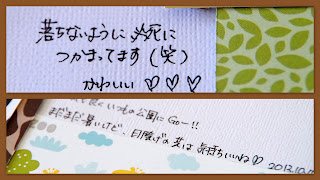 落ちないように必死に
つかまってます(笑)
かわいい♡♡♡
良くいつもの公園にGo-!!
まだまだ暑いけど、日陰げの芝は気持ちいいね♡
2013.10.